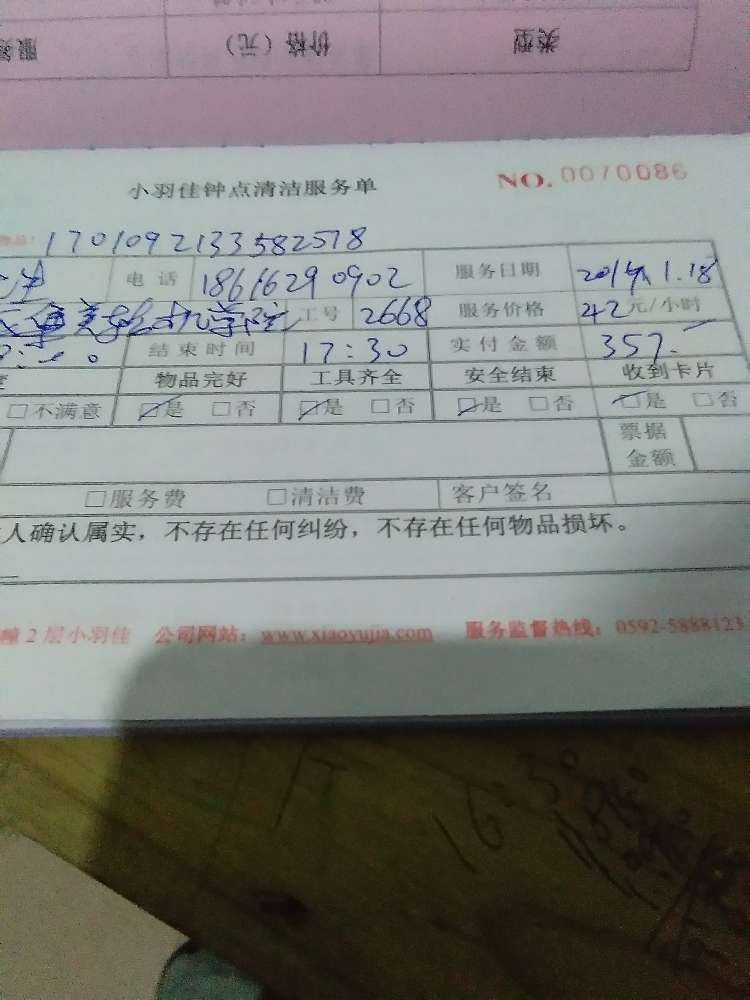 类型 价格（元） 服务
小羽佳钟点清洁服务单 NO. 0070086
1701092133582578
电话 18616290902 服务日期 2017.1.18
工号 2668 服务价格 42元/小时
结束时间 17:30 实付金额 357.-
物品完好 工具齐全 安全结束 收到卡片
□不满意 ☑是 □否 ☑是 □否 ☑是 □否 ☑是 □否
票据
金额
□服务费 □清洁费 客户签名
人确认属实，不存在任何纠纷，不存在任何物品损坏。
幢2层小羽佳 公司网站：www.xiaoyujia.com 服务监督热线：0592-5888123
16:30